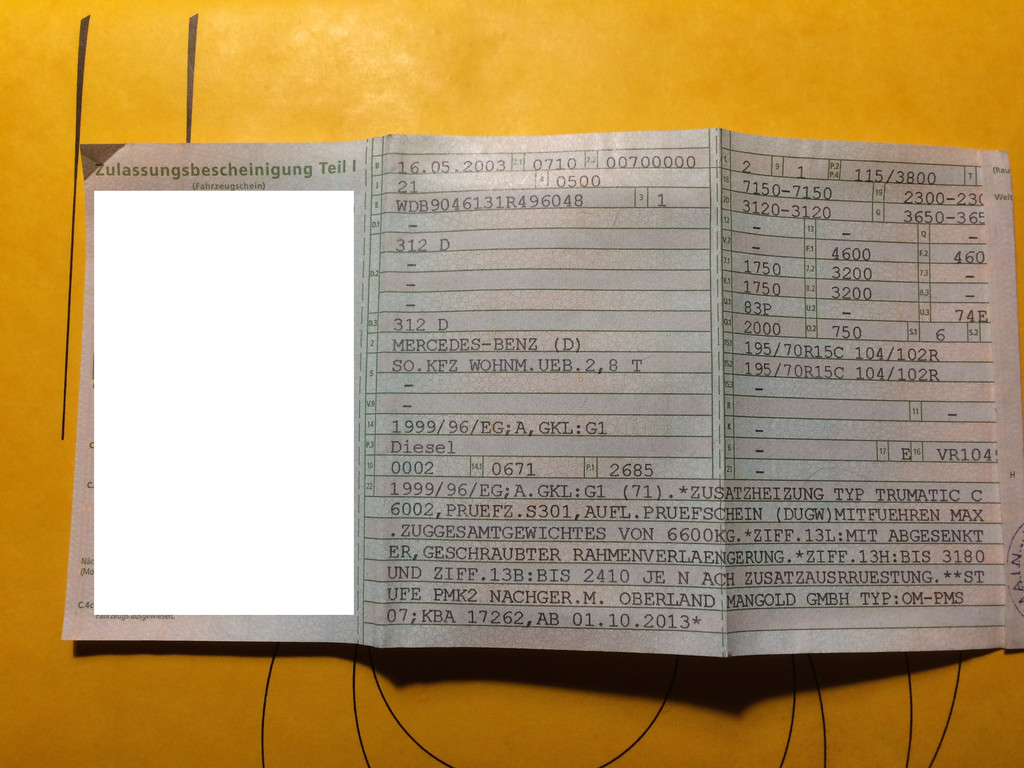 Zulassungsbescheinigung Teil I
(Fahrzeugschein)
B 16.05.2003 2.1 0710 2.2 00700000
J 21 4 0500
E WDB9046131R496048 3 1
D.1 –
312 D
–
D.2 –
–
D.3 312 D
2 MERCEDES-BENZ (D)
5 SO.KFZ WOHNM.UEB.2,8 T
–
V.9 –
14 1999/96/EG;A,GKL:G1
P.3 Diesel
10 0002 14.1 0671 P.1 2685
22 1999/96/EG;A.GKL:G1 (71).*ZUSATZHEIZUNG TYP TRUMATIC C
6002,PRUEFZ.S301,AUFL.PRUEFSCHEIN (DUGW)MITFUEHREN MAX
.ZUGGESAMTGEWICHTES VON 6600KG.*ZIFF.13L:MIT ABGESENKT
ER,GESCHRAUBTER RAHMENVERLAENGERUNG.*ZIFF.13H:BIS 3180
UND ZIFF.13B:BIS 2410 JE N ACH ZUSATZAUSRRUESTUNG.**ST
UFE PMK2 NACHGER.M. OBERLAND MANGOLD GMBH TYP:OM-PMS
07;KBA 17262,AB 01.10.2013*
L 2 9 1 P.2 P.4 115/3800 T
18 7150-7150 19 2300-230
20 3120-3120 G 3650-365
12 – 13 – Q –
V.7 – F.1 4600 F.2 460
7.1 1750 7.2 3200 7.3 –
8.1 1750 8.2 3200 8.3 –
U.1 83P U.2 – U.3 74E
O.1 2000 O.2 750 S.1 6 S.2
15.1 195/70R15C 104/102R
15.2 195/70R15C 104/102R
15.3 –
R 11 –
K –
6 – 17 E 16 VR104
21 –
C.4c
Fahrzeugs ausgewiesen.